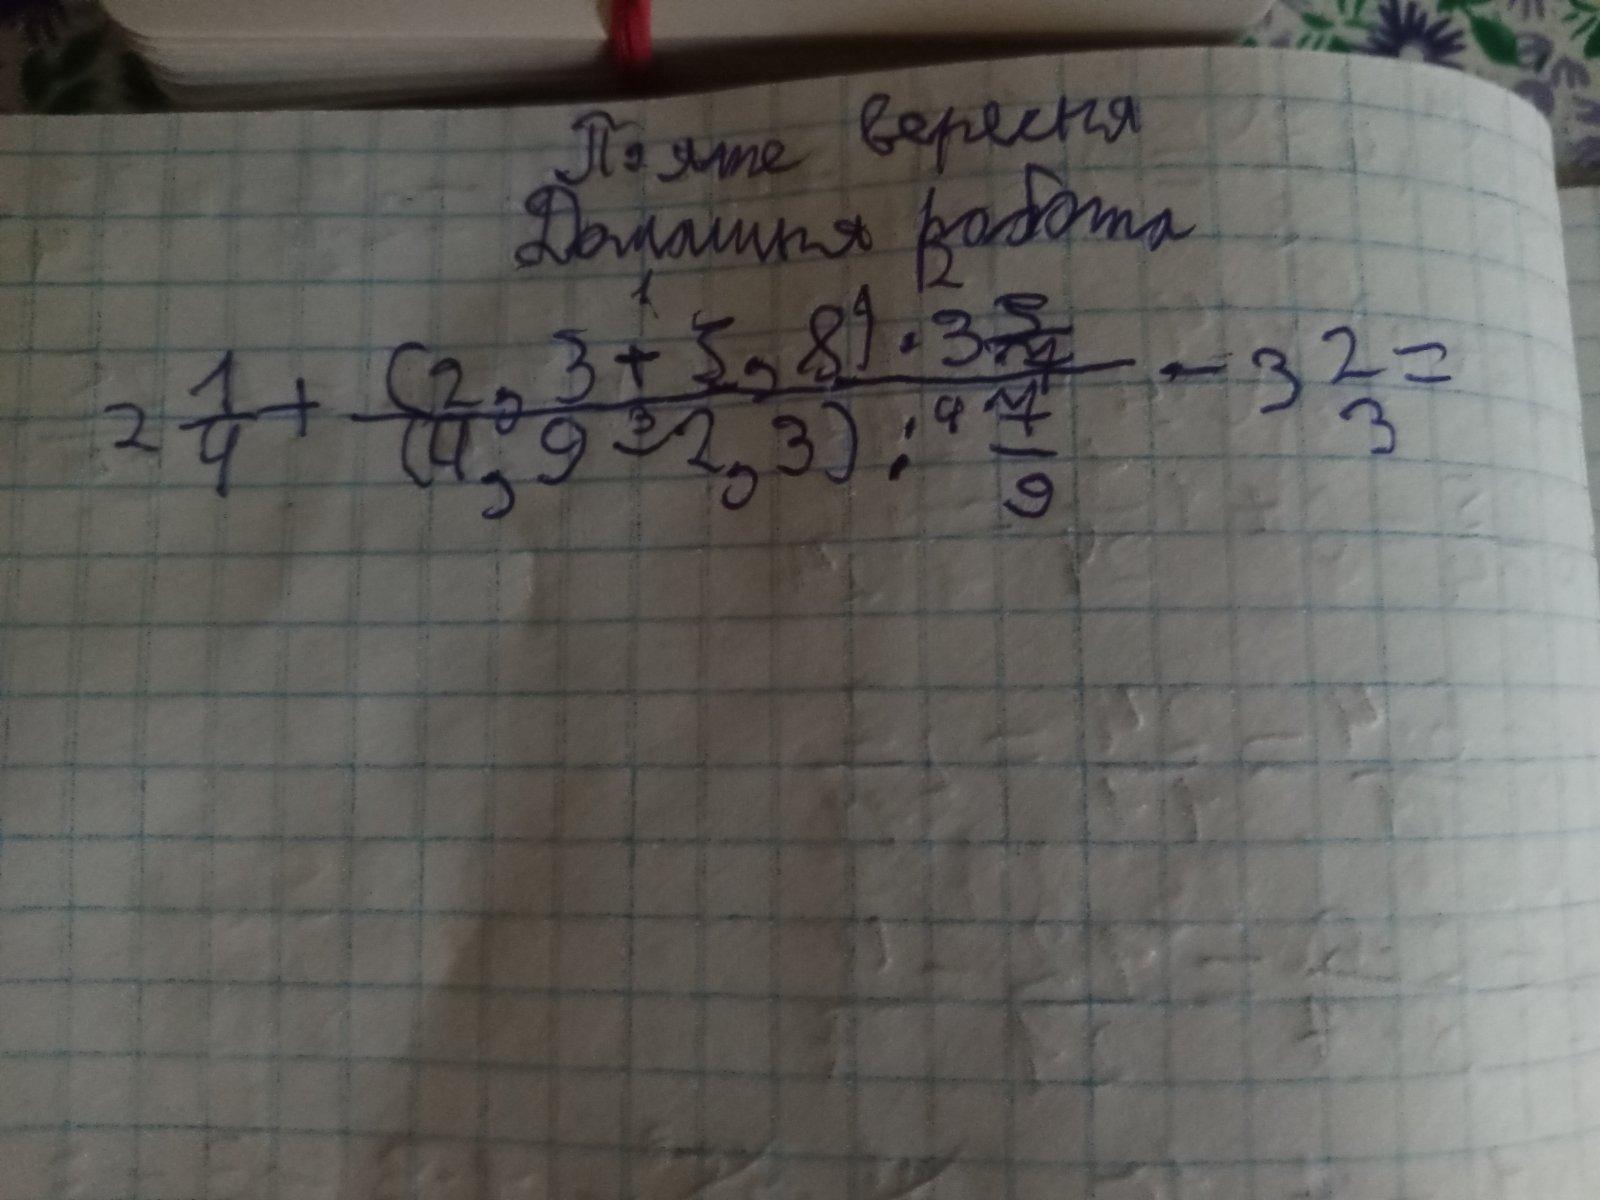 П'яте вересня
Домашня робота
2 1/4 + (2,3 + 5,8) · 3 5/7 / (4,9 - 2,3) : 7/9 - 3 2/3 =